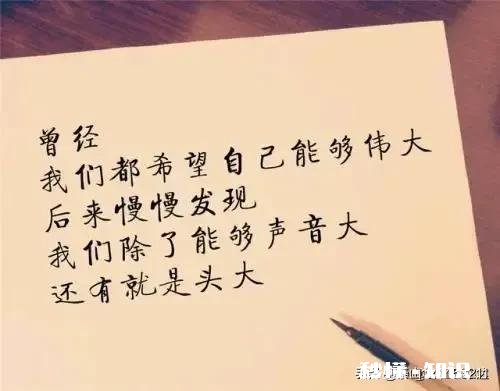 曾经
我们都希望自己能够伟大
后来慢慢发现
我们除了能够声音大
还有就是头大
秒懂·知识